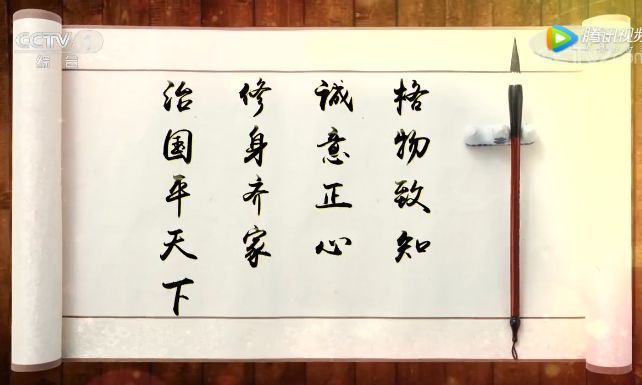 CCTV 1
综合
腾讯视频
格物致知
诚意正心
修身齐家
治国平天下